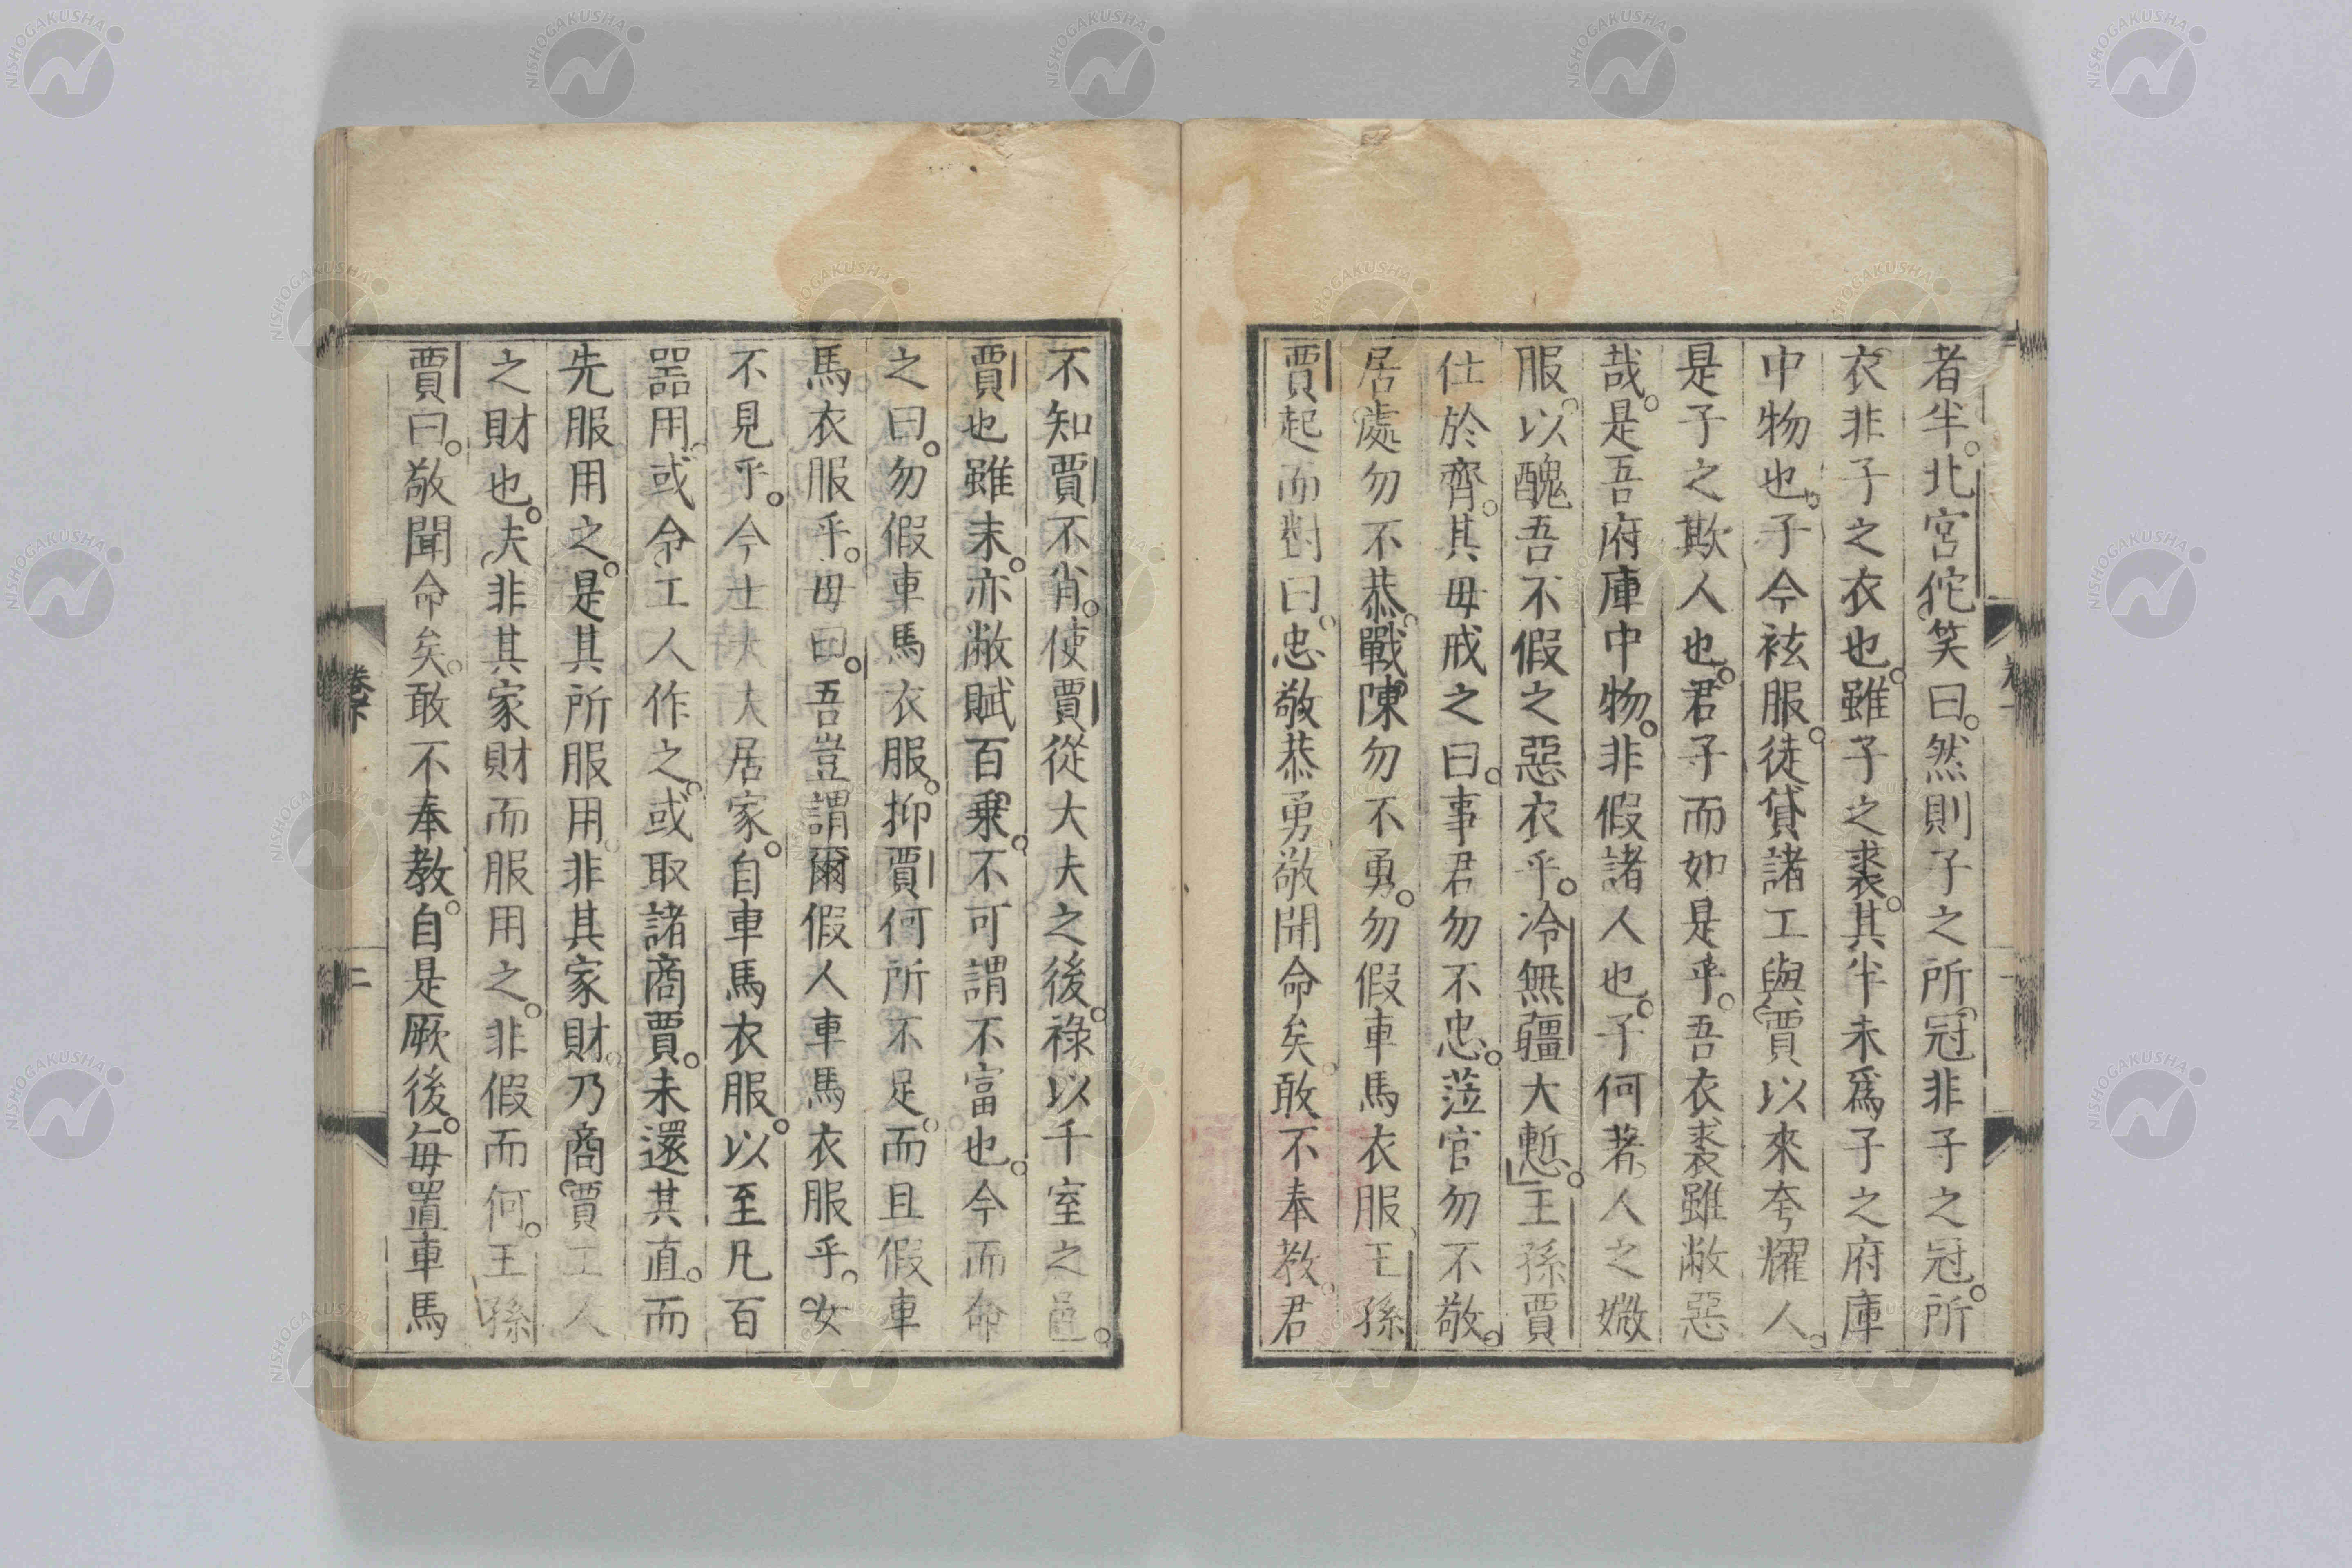 者半。北宮佗笑曰。然則子之所冠非子之冠。所
衣非子之衣也。雖子之裘。其半未爲子之府庫
中物也。子今袨服。徒貸諸工與賈以來夸耀人。
是子之欺人也。君子而如是乎。吾衣裘雖敝惡
哉。是吾府庫中物。非假諸人也。子何著人之媺
服。以醜吾不假之惡衣乎。冷無疆大慙。王孫賈
仕於齊。其毋戒之曰。事君勿不忠。莅官勿不敬。
居處勿不恭。戰陳勿不勇。勿假車馬衣服。王孫
賈起而對曰。忠敬恭勇敬聞命矣。敢不奉教。君
不知賈不肖。使賈從大夫之後。祿以千室之邑。
賈也雖未。亦敝賦百乘。不可謂不富也。今而命
之曰。勿假車馬衣服。抑賈何所不足。而且假車
馬衣服乎。毋曰。吾豈謂爾假人車馬衣服乎。女
不見乎。今士大夫居家。自車馬衣服。以至凡百
器用。或令工人作之。或取諸商賈。未還其直。而
先服用之。是其所服用非其家財。乃商賈工人
之財也。夫非其家財而服用之。非假而何。王孫
賈曰。敬聞命矣。敢不奉教。自是厥後。每置車馬
卷下
二
NISHOGAKUSHA